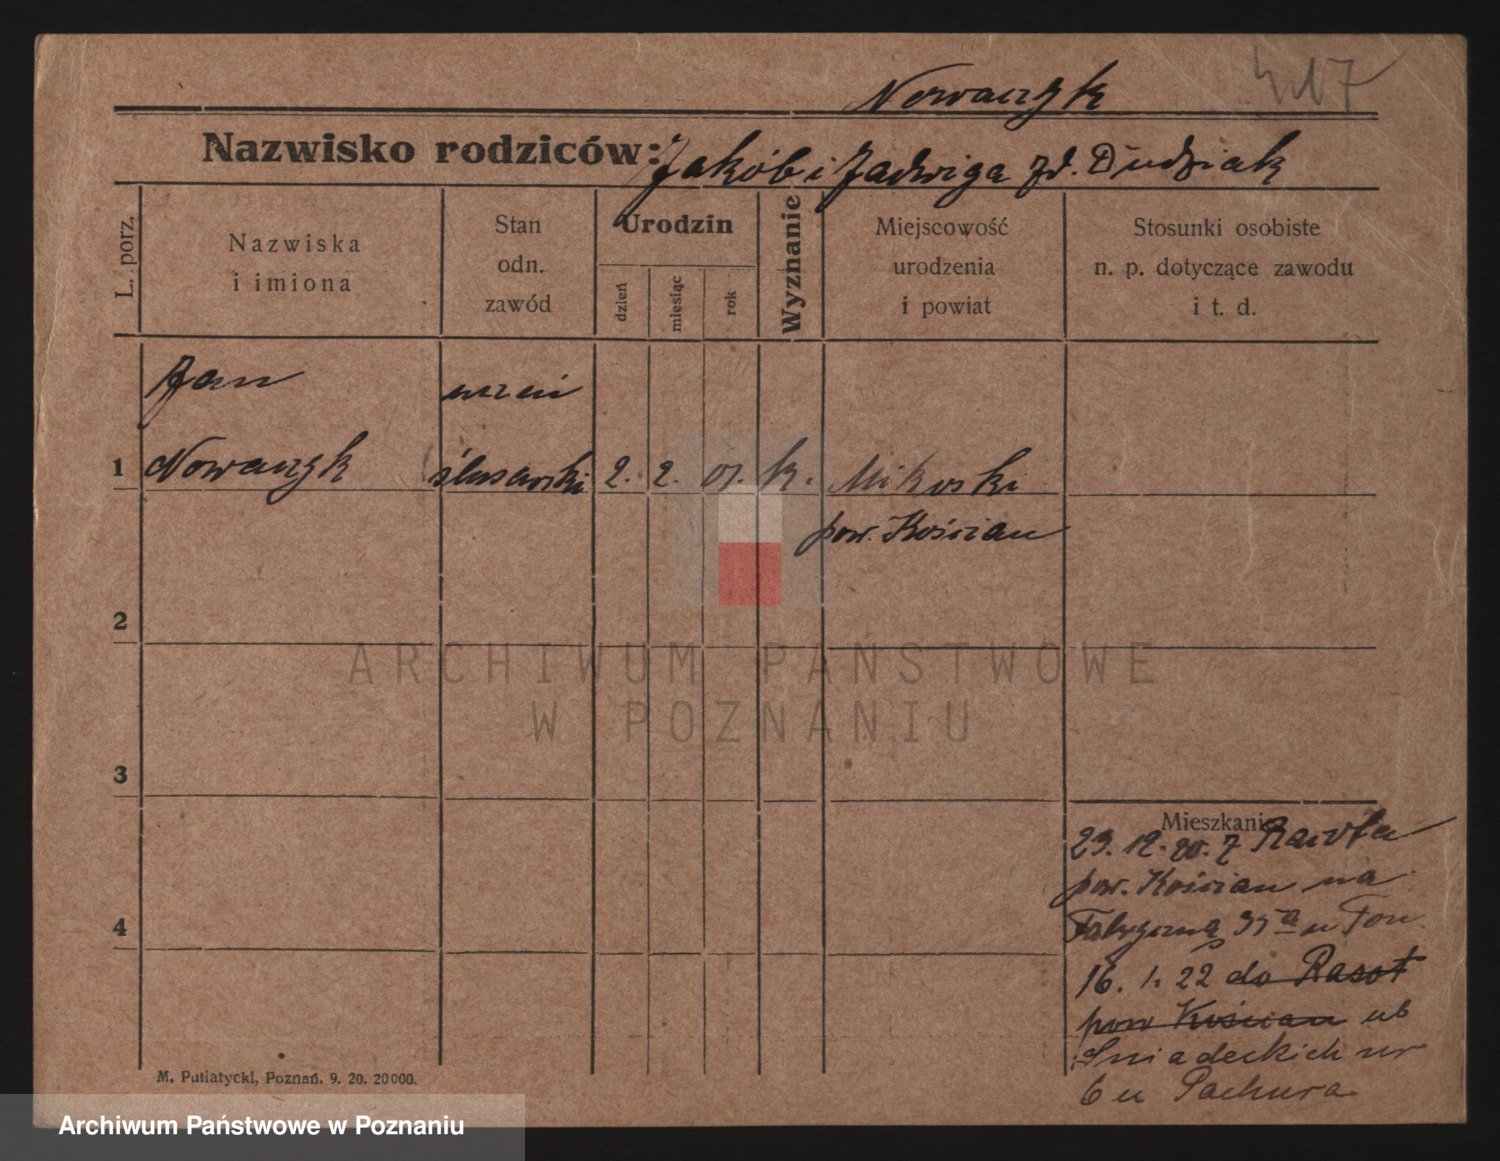 Nowaczyk
Nazwisko rodziców: Jakób i Jadwiga zd. Dudziak
L. porz.
Nazwiska
i imiona
Stan
odn.
zawód
Urodzin
dzień
miesiąc
rok
Wyznanie
Miejscowość
urodzenia
i powiat
Stosunki osobiste
n. p. dotyczące zawodu
i t. d.
Jan uczeń
1 Nowaczyk ślusarski 2. 2. 01. k. Mikoski
pow. Kościan
2
3
4
Mieszkanie
23. 12. 20. z
pow. Kościan na
Fabryczną 35a u
16. 1. 22 do Rasot
pow Kościan ul
Śniadeckich nr
6 u Pachura
M. Putiatycki, Poznań. 9. 20. 20000.
ARCHIWUM PAŃSTWOWE
W POZNANIU
Archiwum Państwowe w Poznaniu